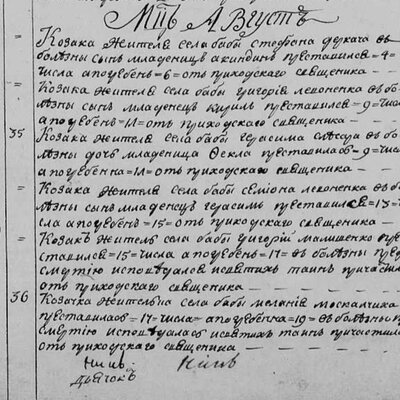 Мцъ Августъ
= Козака жителя села бабы стефана деркача въ
болѣзны сынъ младенецъ акиндинъ преставился =4=
числа а погребенъ =6= отъ приходского священика
= Козака жителя села бабы григорія леконенка въ бо
лѣзны сынъ младенецъ кирилъ преставился =9= числа
а погребенъ =11= отъ приходского священика
35 Козака жителя села бабы герасима слѣсара въ бо
лѣзны дочь младеница Ѳекла преставилась =9= числа
а погребенна =11= отъ приходского священика
= Козака жителя села бабы семіона леконенка въ бо
лѣзны сынъ младенецъ герасимъ преставился =13= чи
сла а погребенъ =15= отъ приходского священика
= Козакъ житель села бабы григорій малишенко пре
ставился =15= числа а погребенъ =17= въ болѣзны пред
смертію исповѣдался и святихъ таинъ причастил
отъ приходского священика
36 Козачка жителька села бабы меланія москалчиха
преставилась =17= числа = а погребенна =19= въ болѣзны п
смертію исповѣдалась и святихъ таинъ причастил
отъ приходского священика
дьячокъ